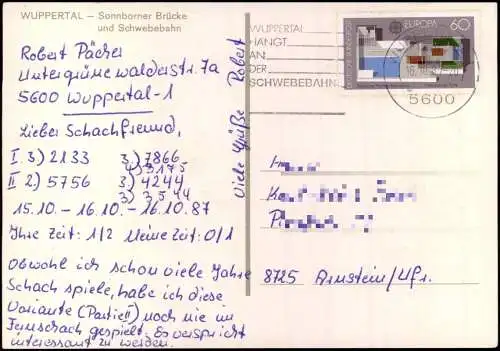 WUPPERTAL – Sonnborner Brücke
und Schwebebahn
Robert Pächer
Untergrünewalderstr. 7a
5600 Wuppertal-1
Lieber Schachfreund,
I 3.) 2133 3.) 7866
4.) 3175
II 2.) 5756 3.) 4244
3.) 3544
15.10. – 16.10. – 16.10.87
Ihre Zeit: 1/2 Meine Zeit: 0/1
Obwohl ich schon viele Jahre
Schach spiele, habe ich diese
Variante (Partie II) noch nie im
Fernschach gespielt. Es verspricht
interessant zu werden.
Viele Grüße Robert
WUPPERTAL
HÄNGT
AN
DER
SCHWEBEBAHN
EUROPA 60
5600
8725 Arnstein/Ufr.